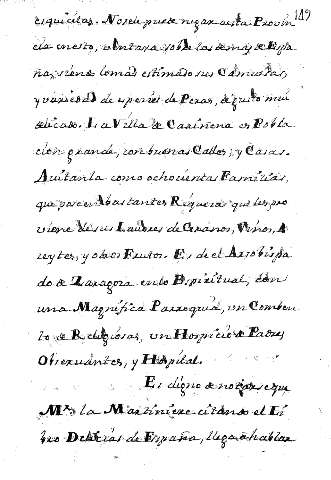 119
esquicitas. No se le puede negar a esta Provin
cia en esto, ventaxa sobre las demas de Espa
ña, siendo lo mas estimado sus Camuesas,
y variedad de especies de Peras, de gusto mui
delicado. La Villa de Cariñena es Pobla
cion grande, con buenas Calles, y Casas.
Avitanla como ochocientas Familias,
que poseen Abastantes Riquezas que les pro
viene de sus Laudres de Granos, Vinos, A
zeytes, y otros Frutos. Es de el Arzobispa
do de Zaragoza en lo Espiritual, con
una Magnifica Parroquia, un Comben
to de Religiosas, un Hospicio de Padres
Observantes, y Hospital.
Es digno de notarse que
Mr. la Martiniere citando el Li
bro Delicias de España, llega a hablar